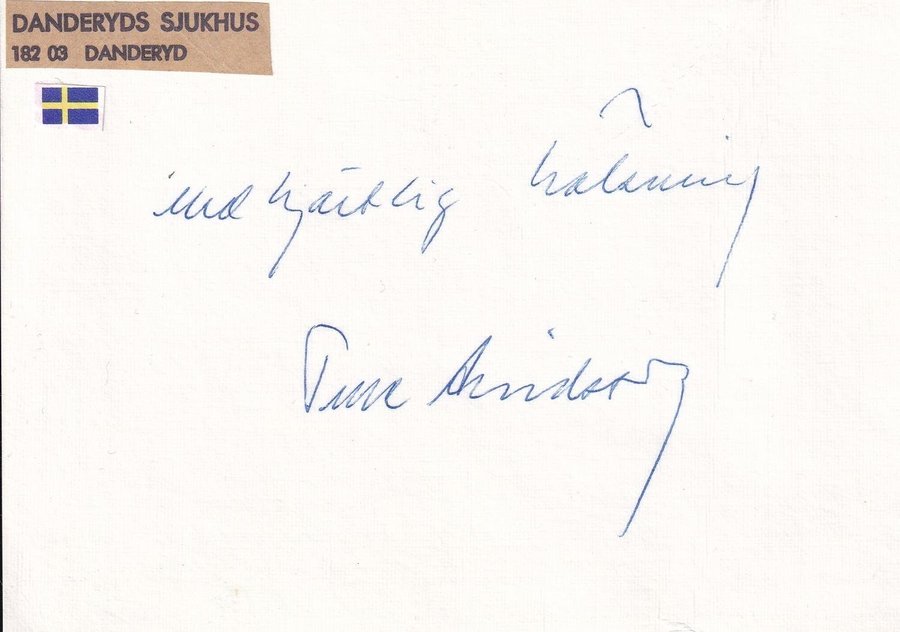 DANDERYDS SJUKHUS
182 03 DANDERYD
med hjärtlig hälsning
Arvidsson